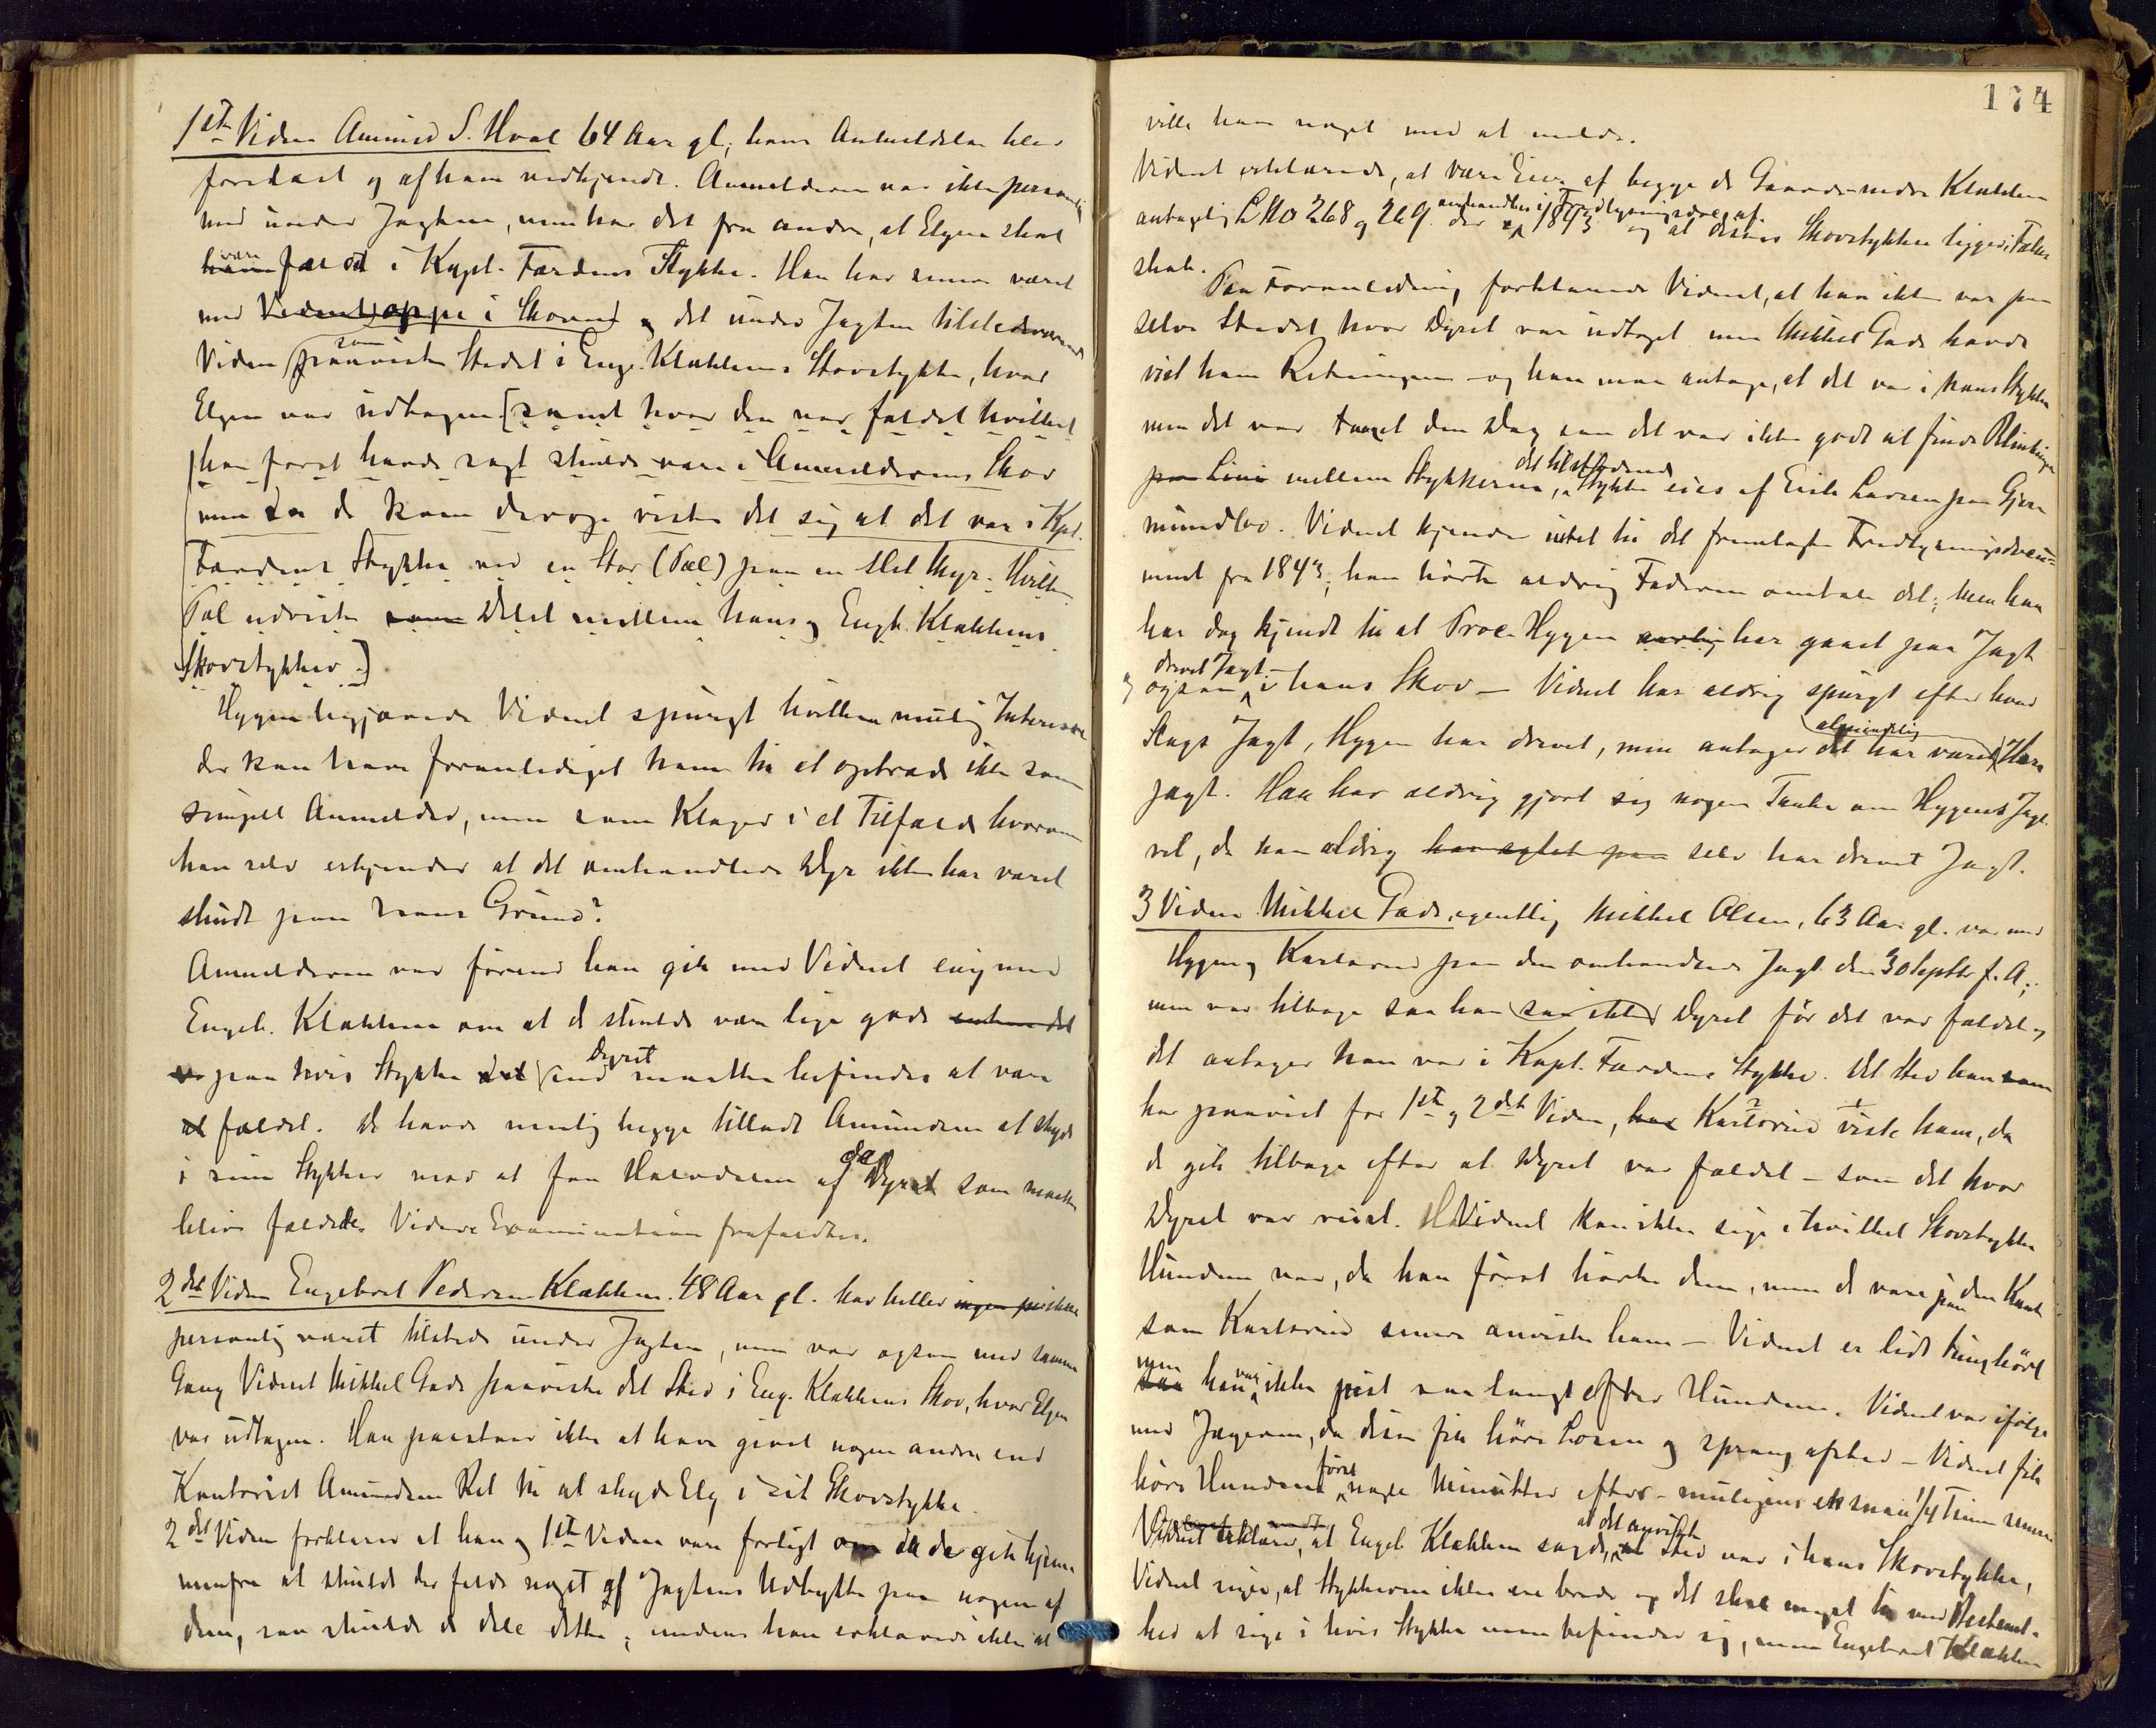 1ste Vidne Amund S. Hval 64 Aar gl., hans Anmeldelse blev
forelæst og af ham vedkjendt. Anmelderen var ikke personlig
med under Jagten, men har det fra andre, at Elgen skal
være fældt i Kapt. Færdens Stykke. Han har senere været
med Vidnet oppe i Skoven og det under Jagten tilstedeværende
Vidne som paaviste Stedet i Eng. Klækkens Skovstykke, hvor
Elgen var udtagen [samt hvor den var faldet hvilket
han først havde sagt skulde være i Anmelderens Skov
men da de kom derop viste det sig at det var i Kpt.
Færdens Stykke ved en Stor (Pæl) paa en liden Myr. Hvilken
Pæl udviste Delet mellem hans og Engb. Klækkens
Skovstykker.]
Hygen begjærede Vidnet spurgt hvilken mulig Interesse
der kan have foranlediget ham til at optræde ikke som
simpel Anmelder, men som Klager i et Tilfælde hvorom
han selv erkjender at det omhandlede Dyr ikke har været
skudt paa hans Grund?
Anmelderen var førend han gik med Vidnet enig med
Engeb. Klækken om at det skulde være lige godt enten det
var paa hvis Stykke det end Dyret maatte befindes at være
fældet. De havde nemlig begge tilladt Amundsen at skyde
i sine Stykker mod at faa Halvdelen af de Dyr som maatte
blive fældede. Videre Examination frafaldtes.
2det Vidne Engebret Pedersen Klækken. 48 Aar gl. har heller
personlig været tilstede under Jagten, men var ogsaa med samme
Gang Vidnet Mikkel Gade paaviste det Sted i Eng. Klækkens Skov, hvor Elgen
var udtagen. Han paastaar ikke at have givet nogen anden end
Kontorist Amundsen Ret til at skyde Elg i sit Skovstykke.
2det Vidne forklarer at han og 1ste Vidne vare forligt om da de gik hjemme
menfra at skulde der falde noget af Jagtens Udbytte paa nogen af
dem, saa skulde de dele dette; medens han erklærede ikke at
174
ville have noget med at melde.
Vidnet erklærede, at være Eier af begge de Gaarde nedre Klækken
antagelig LNo 268 og 269 der omhandles i Fredlysningsdoc. af 1843 og at disses Skovstykker ligger i Fælles
skab.
Paa Foranledning forklarede Vidnet, at han ikke var paa
selve Stedet hvor Dyret var udtaget men Mikkel Gade havde
vist ham Retningen – og han maa antage, at det var i hans Stykke
men det var taaget den Dag saa det var ikke godt at finde Blinkningen
paa Linie mellem Stykkerne, det tilstødende Stykke eies af Erik Larsen paa Gjer
mundbo. Vidnet kjender intet til det fremlagte Fredlysningsdocu-
ment fra 1843; han hørte aldrig Faderen omtale det; men han
har dog kjendt til at Proc. Hygen har gaaet paa Jagt
og ogsaa drevet Jagt i hans Skov – Vidnet har aldrig spurgt efter hvad
Slags Jagt, Hygen har drevet, men antager det har været almindelig Hare
jagt. Han har aldrig gjort sig nogen Tanke om Hygens Jagt
ret, da han aldrig har agtet paa selv har drevet Jagt.
3 Vidne Mikkel Gade, egentlig Mikkel Olsen, 63 Aar gl. var med
Hygen og Karlsrud paa den omhandlede Jagt den 30 Septbr f. A.;
men var tilbage saa han saa ikke Dyret før det var faldet, og
det antager han var i Kapt. Færdens Stykke. Det Sted han som
har paavist for 1ste og 2det Vidne, har Karlsrud viste ham, da
de gik tilbage efter at Dyret var faldet – som det hvor
Dyret var reist. Vidnet kan ikke sige i hvilket Skovstykke
Hundene var, da han først hørte dem, men de vare paa den Kant
som Karlsrud senere anviste ham – Vidnet er lidt tunghørt
men han var ikke just saa langt efter Hundene. Vidnet var ifølge
med Jægerne, da disse fik høre Losen og sprang afsted – Vidnet fik
høre Hundene først nogle Minutter efter – muligens en snau 1/4 Time senere
Vidnet erklærer, at Engeb Klækken sagde, at det anviste Sted var i hans Skovstykke,
Vidnet siger, at Stykkerne ikke ere brede og det skal meget til med Bestemt-
hed at sige i hvis Stykke man befinder sig, men Engebret Klækken